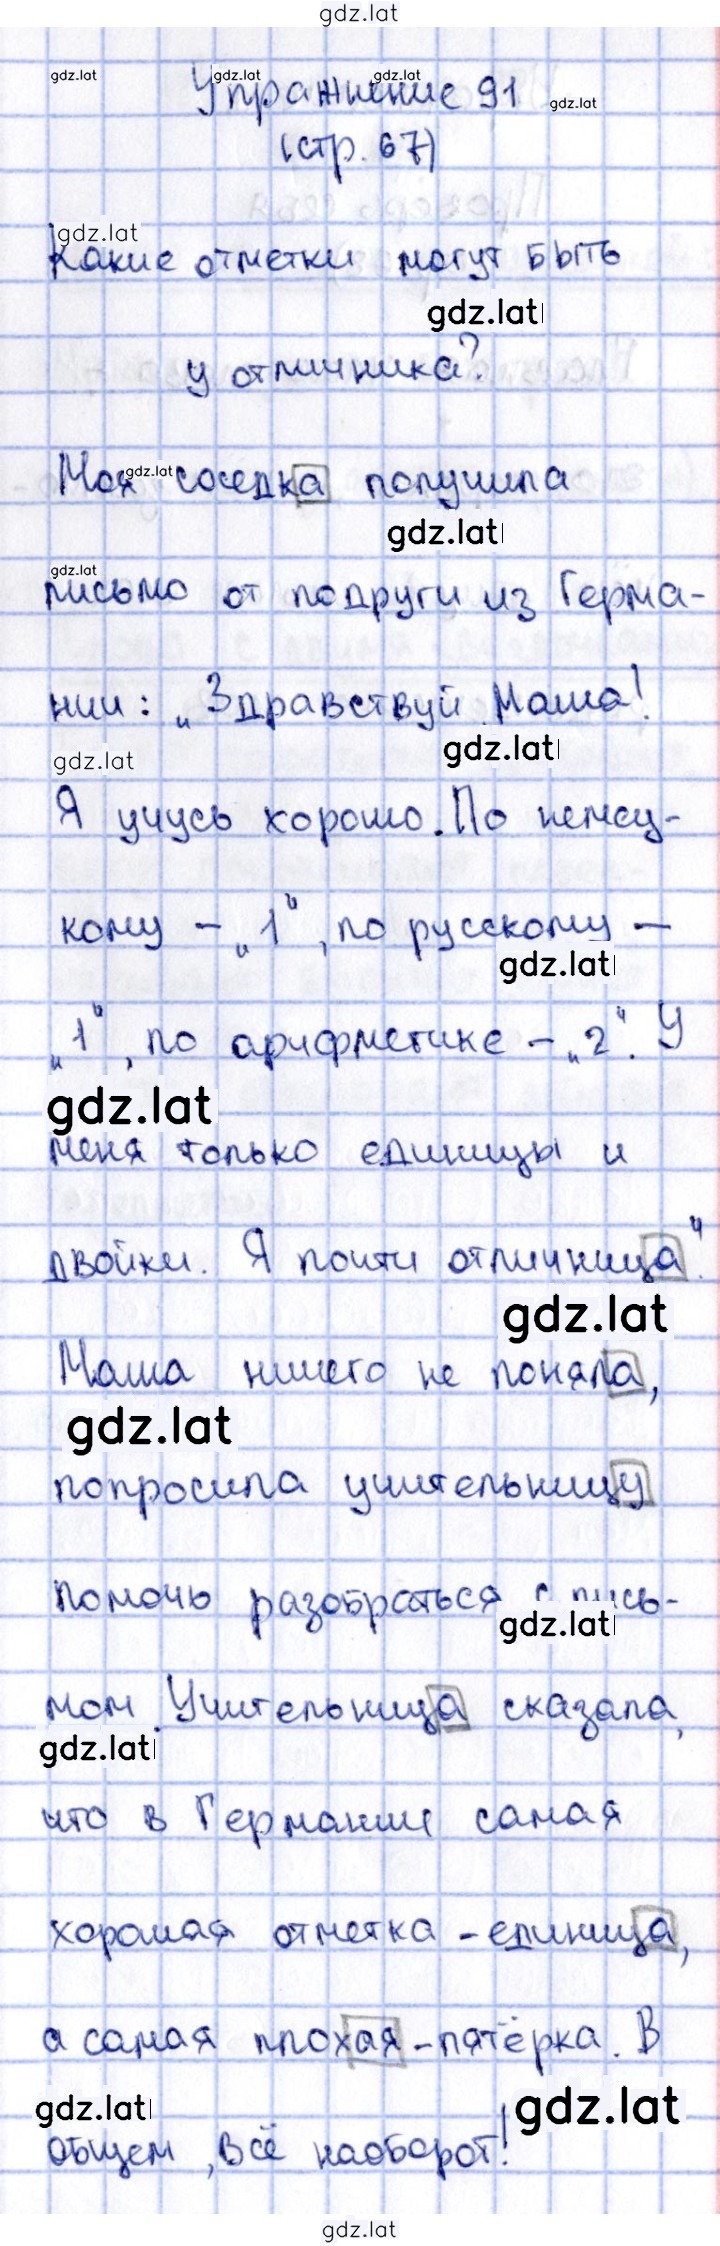 gdz.lat
gdz.lat gdz.lat gdz.lat gdz.lat
Упражнение 91
(стр. 67)
gdz.lat
Какие отметки могут быть
gdz.lat
у отличника?
Моя соседка получила
gdz.lat
gdz.lat
gdz.lat
письмо от подруги из Герма-
нии: „Здравствуй, Маша!
gdz.lat
gdz.lat
Я учусь хорошо. По немец-
кому – „1“, по русскому –
gdz.lat
„1“, по арифметике – „2“. У
gdz.lat
меня только единицы и
двойки. Я почти отличница“.
gdz.lat
Маша ничего не поняла,
gdz.lat
попросила учительницу
помочь разобраться с пись-
gdz.lat
мом. Учительница сказала,
gdz.lat
что в Германии самая
хорошая отметка – единица,
а самая плохая – пятёрка. В
gdz.lat
gdz.lat
общем, всё наоборот!
gdz.lat